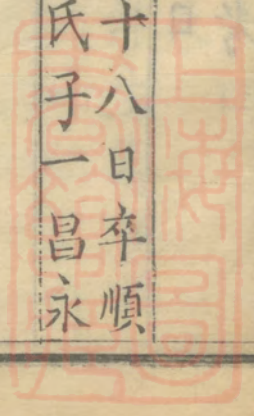 十八日卒順
氏子一昌永